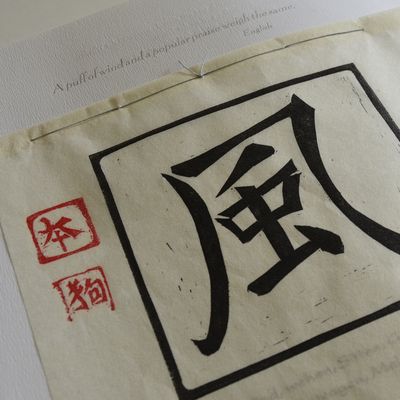 A puff of wind and a popular praise weigh the same.
English
風
本
狗